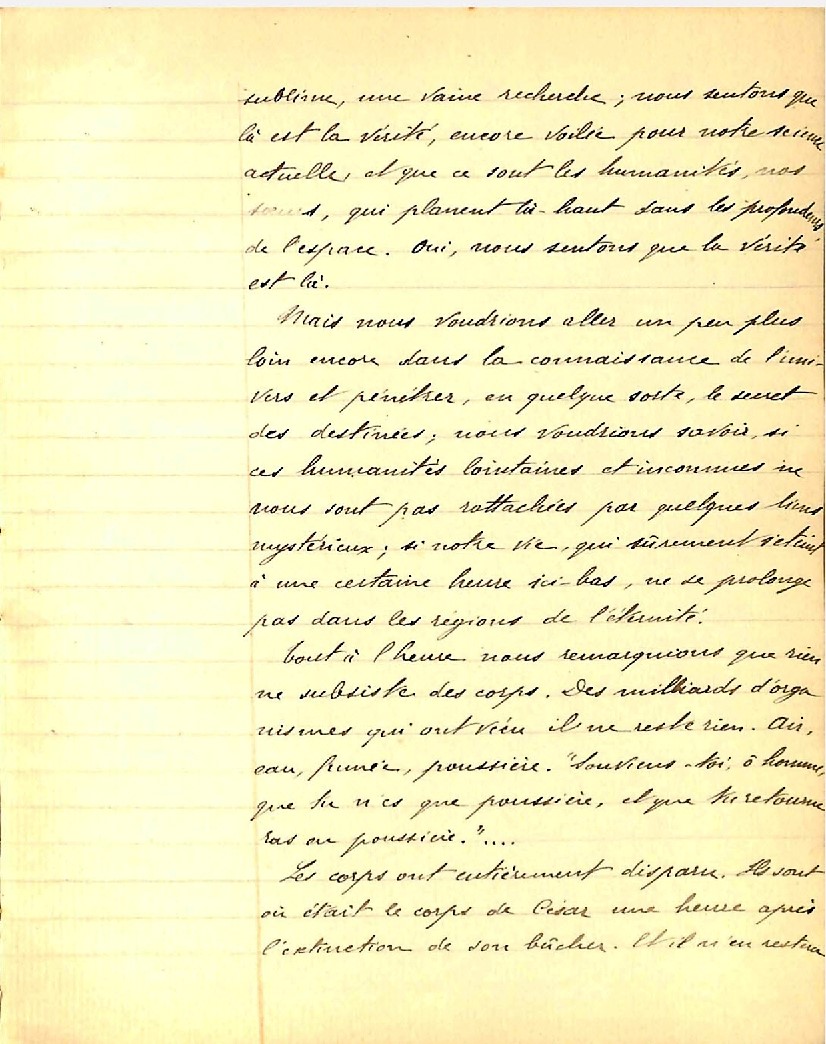 sublime, une vaine recherche ; nous sentons que
là est la vérité, encore voilée pour notre science
actuelle, et que ce sont les humanités, nos
sœurs, qui planent là-haut dans les profondeurs
de l'espace. Oui, nous sentons que la vérité
est là.
Mais nous voudrions aller un peu plus
loin encore dans la connaissance de l'uni-
vers et pénétrer, en quelque sorte, le secret
des destinées ; nous voudrions savoir, si
ces humanités lointaines et inconnues ne
nous sont pas rattachées par quelques liens
mystérieux ; si notre vie, qui sûrement s'éteint
à une certaine heure ici-bas, ne se prolonge
pas dans les régions de l'éternité.
Tout à l'heure nous remarquions que rien
ne subsiste des corps. Des milliards d'orga
nismes qui ont vécu il ne reste rien. Air,
eau, fumée, poussière. "Souviens-toi, ô homme,
que tu n'es que poussière, et que tu retourne
ras en poussière."....
Les corps ont entièrement disparu. Ils sont
où était le corps de César une heure après
l'extinction de son bûcher. Et il n'en restera